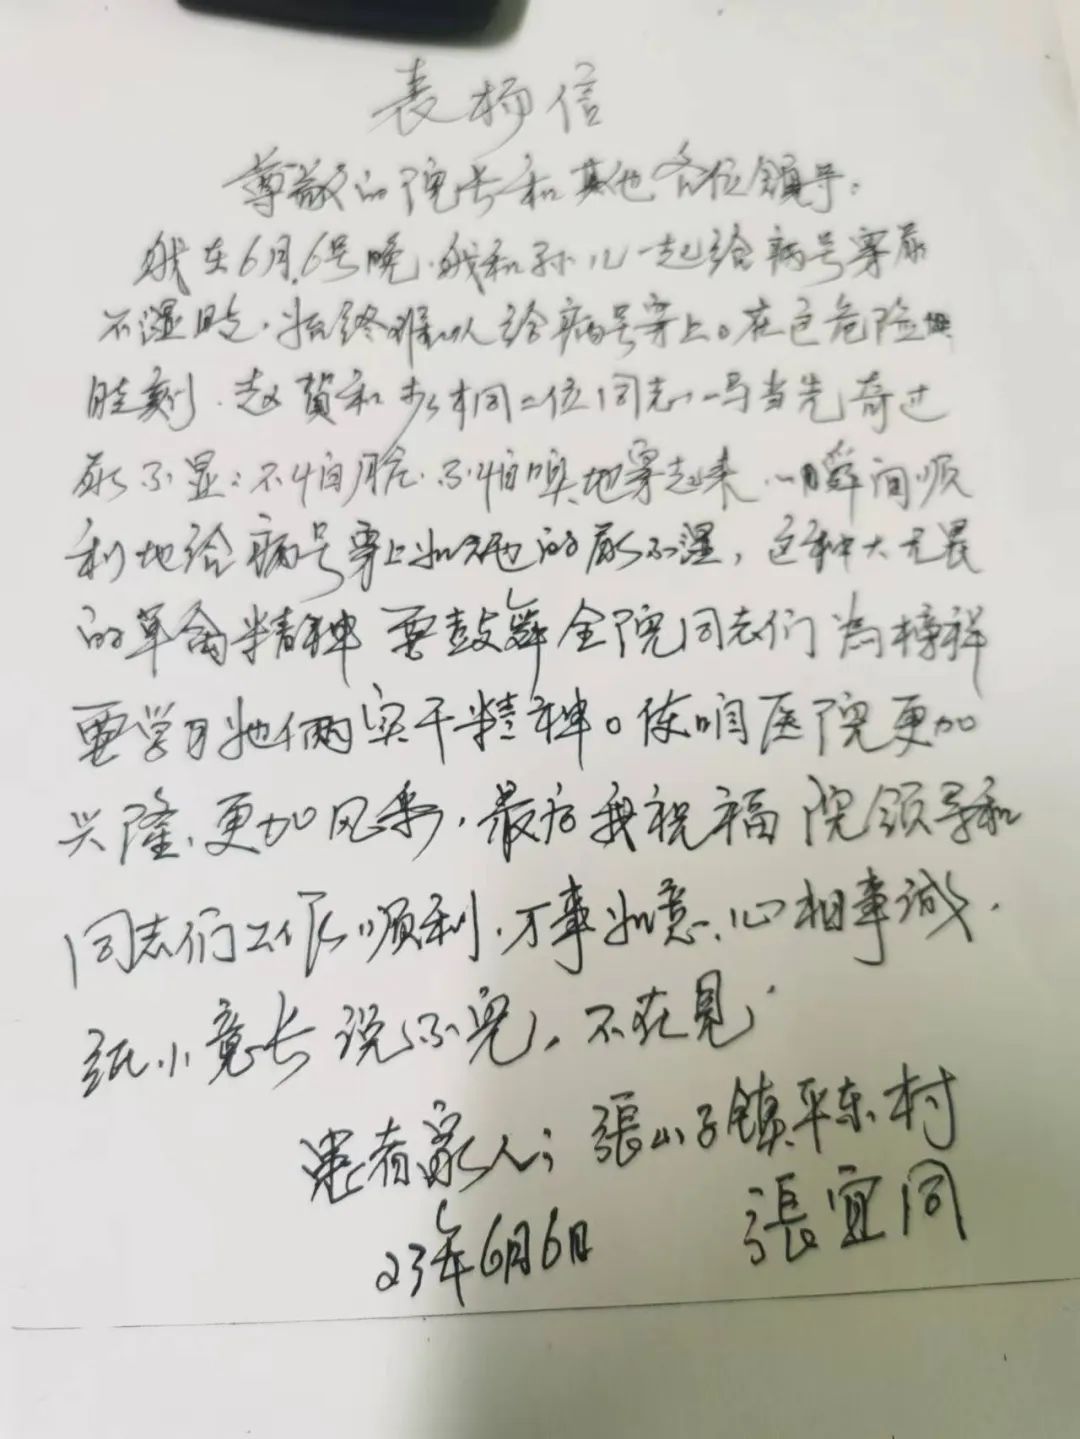 表扬信
尊敬的院长和其他各位领导:
我在6月6号晚,我和孙儿一起给病号穿尿
不湿时,始终难以给病号穿上。在这危险
时刻,赵贺和 相同二位同志一马当先夺过
尿不显:不怕脏.不怕臭地穿起来,一瞬间顺
利地给病号穿上 的尿不湿,这种大无畏
的革命精神要鼓舞全院同志们为榜样
要学习她俩实干精神。使咱医院更加
兴隆,更加风采,最后我祝福院领导和
同志们工作顺利,万事如意,心相事诚,
纸小意长说不完,不在见.
患者家人:張山子镇平东村
23年6月6日 張宜同